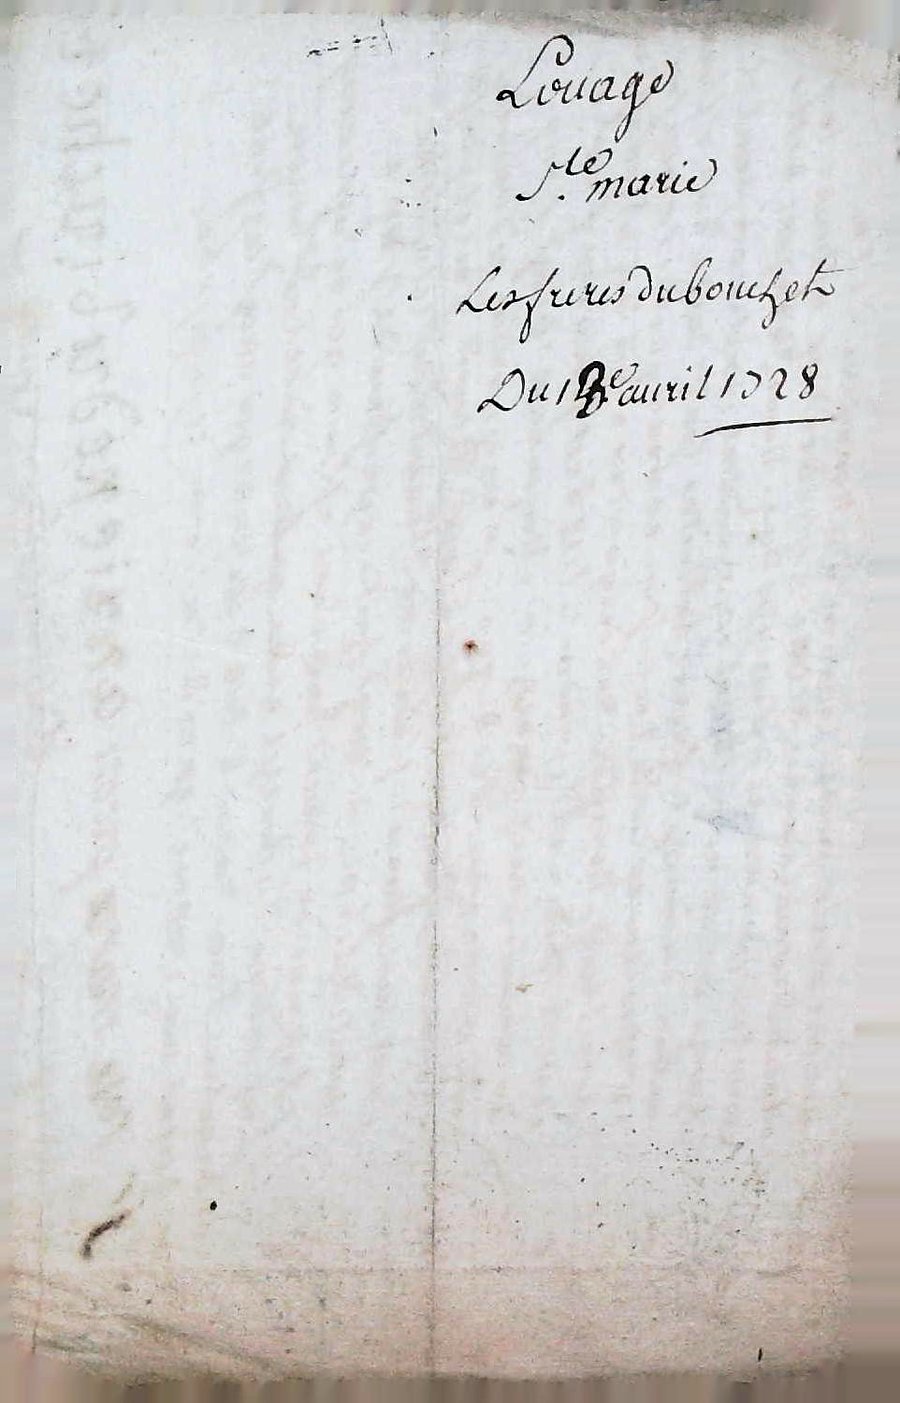 Louage
S.te marie
Les freres du bouchet
Du 13e auril 1728